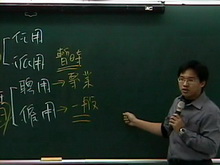 任用
派用 暫時
聘用→專業
僱用→一般